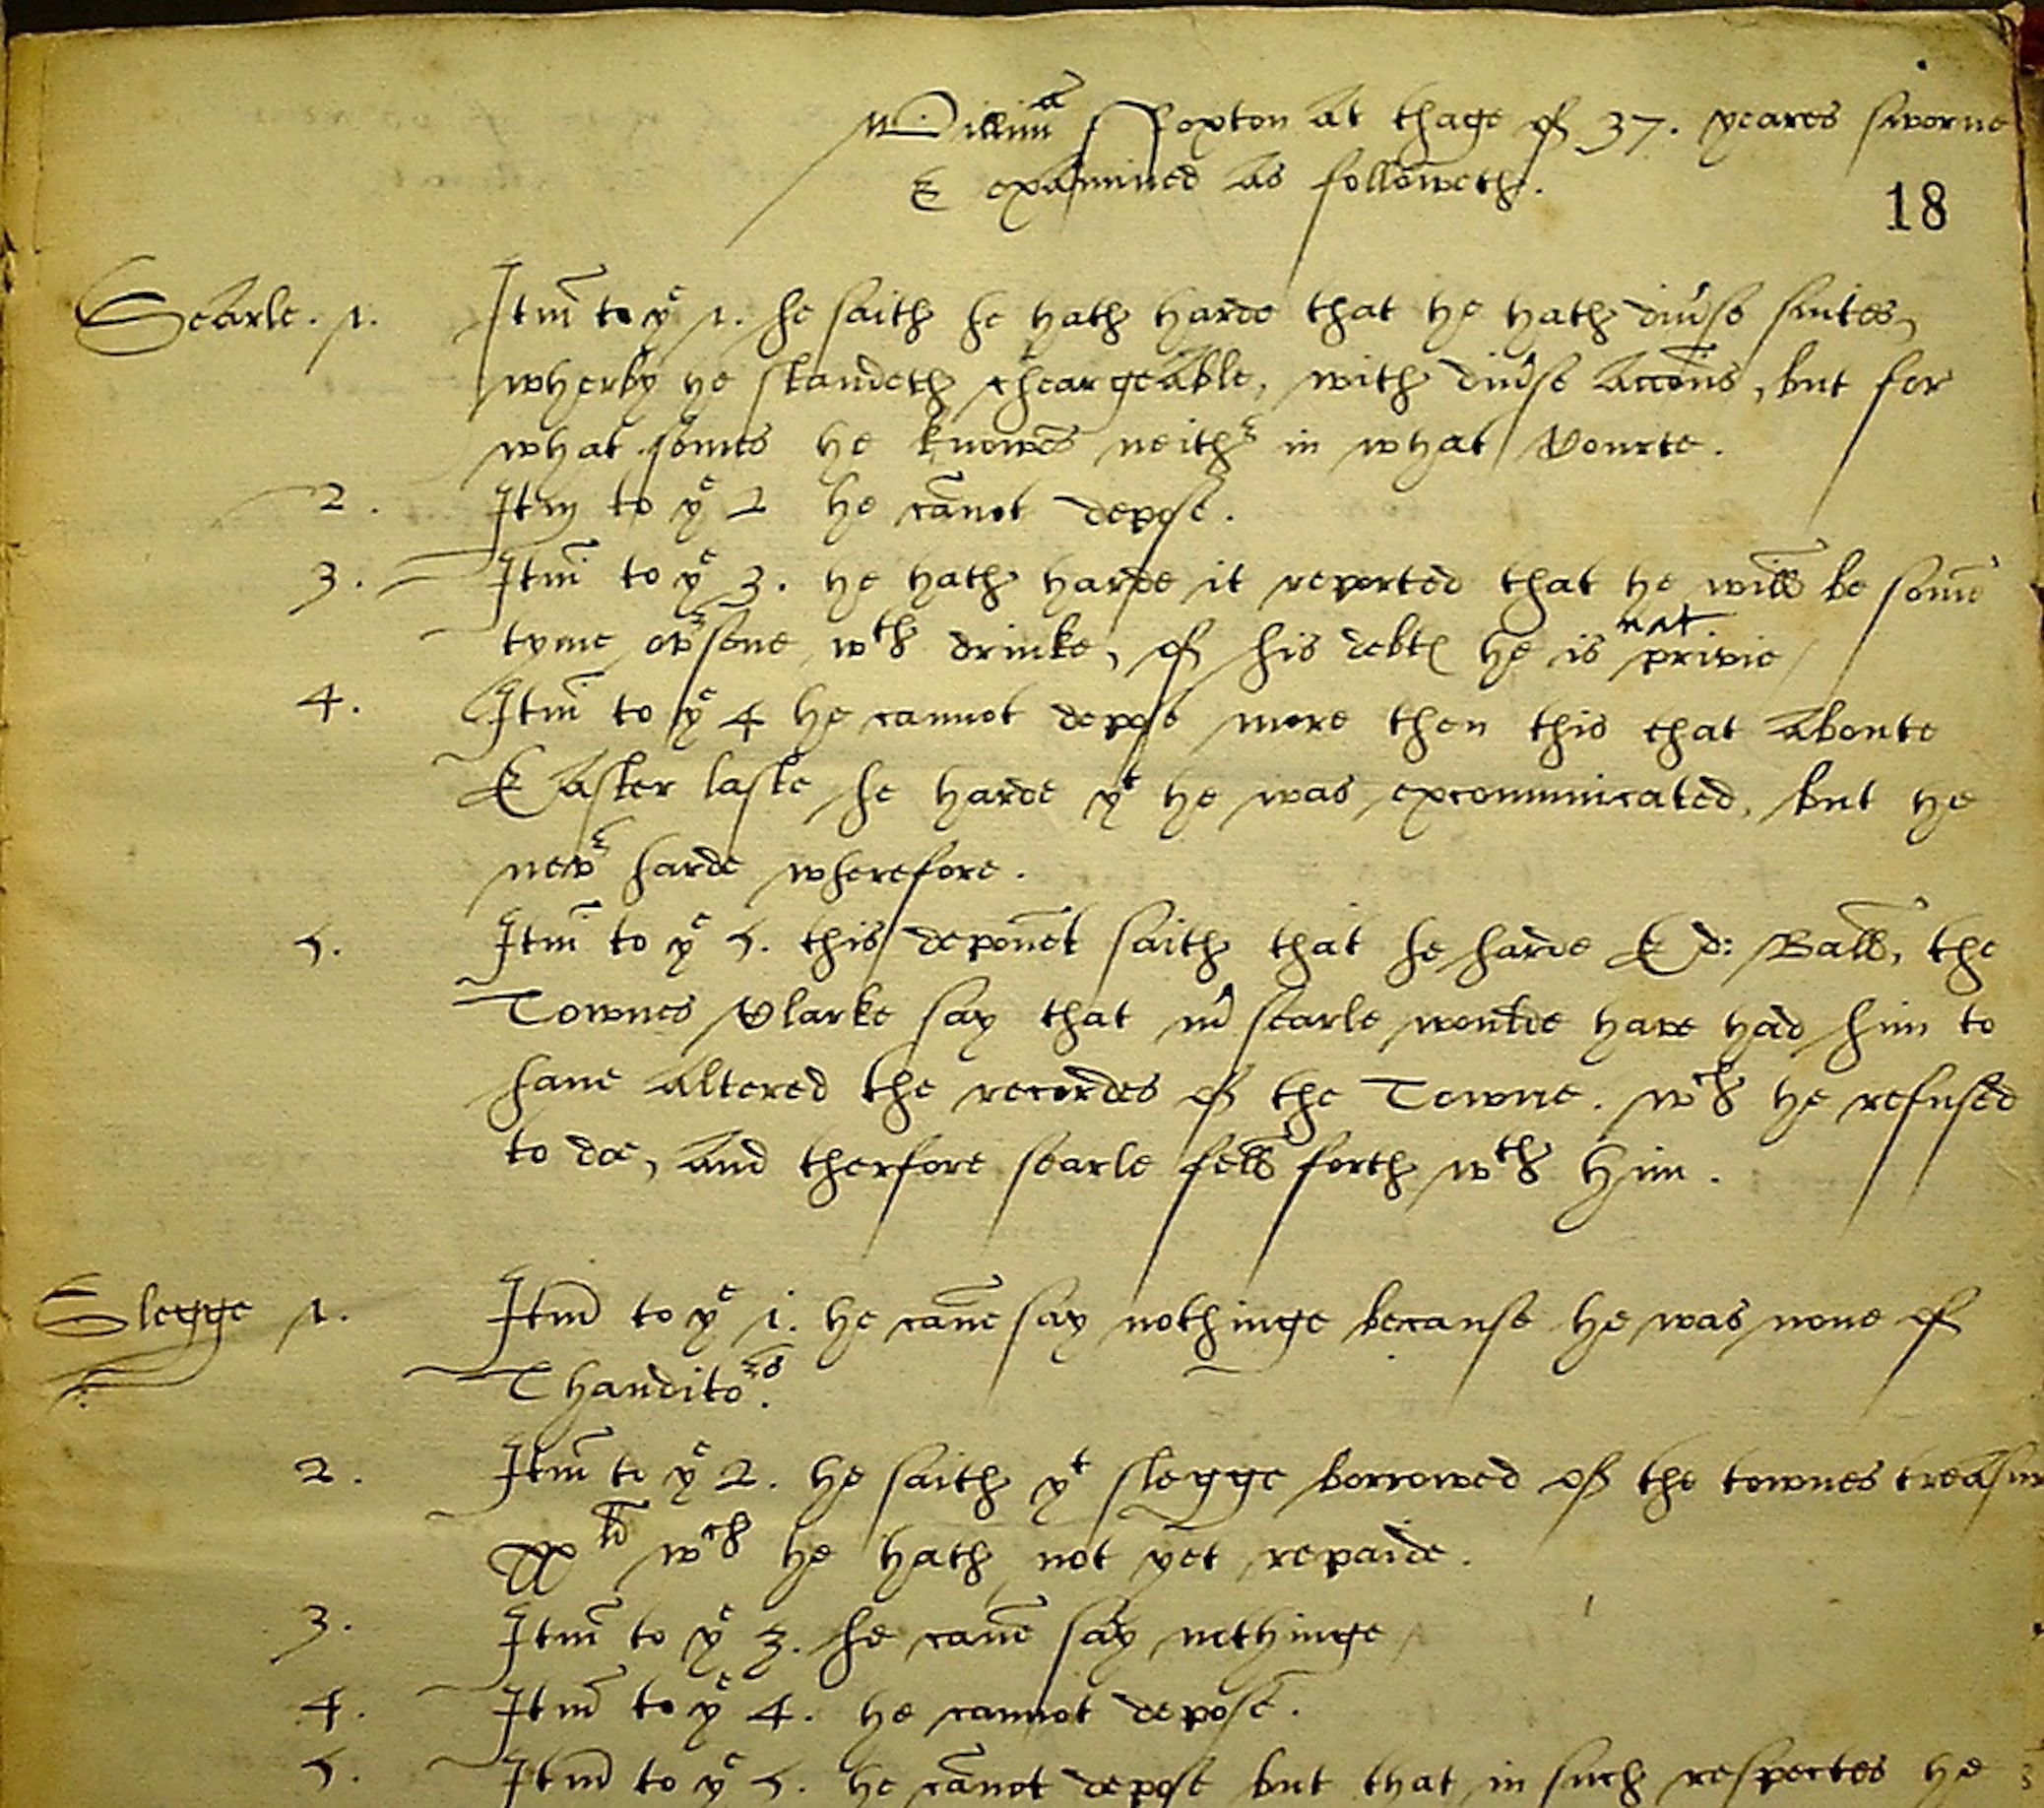 Willim̃ Foxton at thage of 37. yeares sworne
& examined as followeth.
18
Searle. 1. Itm̃ to yͤ 1. he saith he hath harde that he hath diu'se suites,
wherby he standeth cheargeable, with diu'se accõns, but for
what somes he knowes neithʳ in what Courte.
2. Itm to yͤ 2 he cãnot depose.
3. Itm̃ to yͤ 3. he hath harde it reported that he will be some
tyme ovʳsene wᵗʰ drinke, of his debtꝭ he is not privie
4. Itm̃ to yͤ 4 he cannot depose more then this that aboute
Easter laste he harde yᵗ he was excommunicated, but he
nevʳ harde wherefore.
5. Itm̃ to yͤ 5. this depone͂t saith that he harde Ed: Ball, the
Townes Clarke say that mʳ searle woulde have had him to
haue altered the recordes of the Towne. wᶜʰ he refused
to doe, and therfore searle fell forth wᵗʰ him.
Slegge 1. Itm̃ to yͤ 1. he cañe say nothinge because he was none of
Thauditoʳˢ.
2. Itm̃ to yͤ 2. he saith yᵗ slegge borrowed of the townes treasur
xxˡⁱ wᶜʰ he hath not yet repaide.
3. Itm̃ to yͤ 3. he cañe say nothinge
4. Itm̃ to yͤ 4. he cannot depose.
5. Itm̃ to yͤ 5. he cãnot depose but that in such respectes he